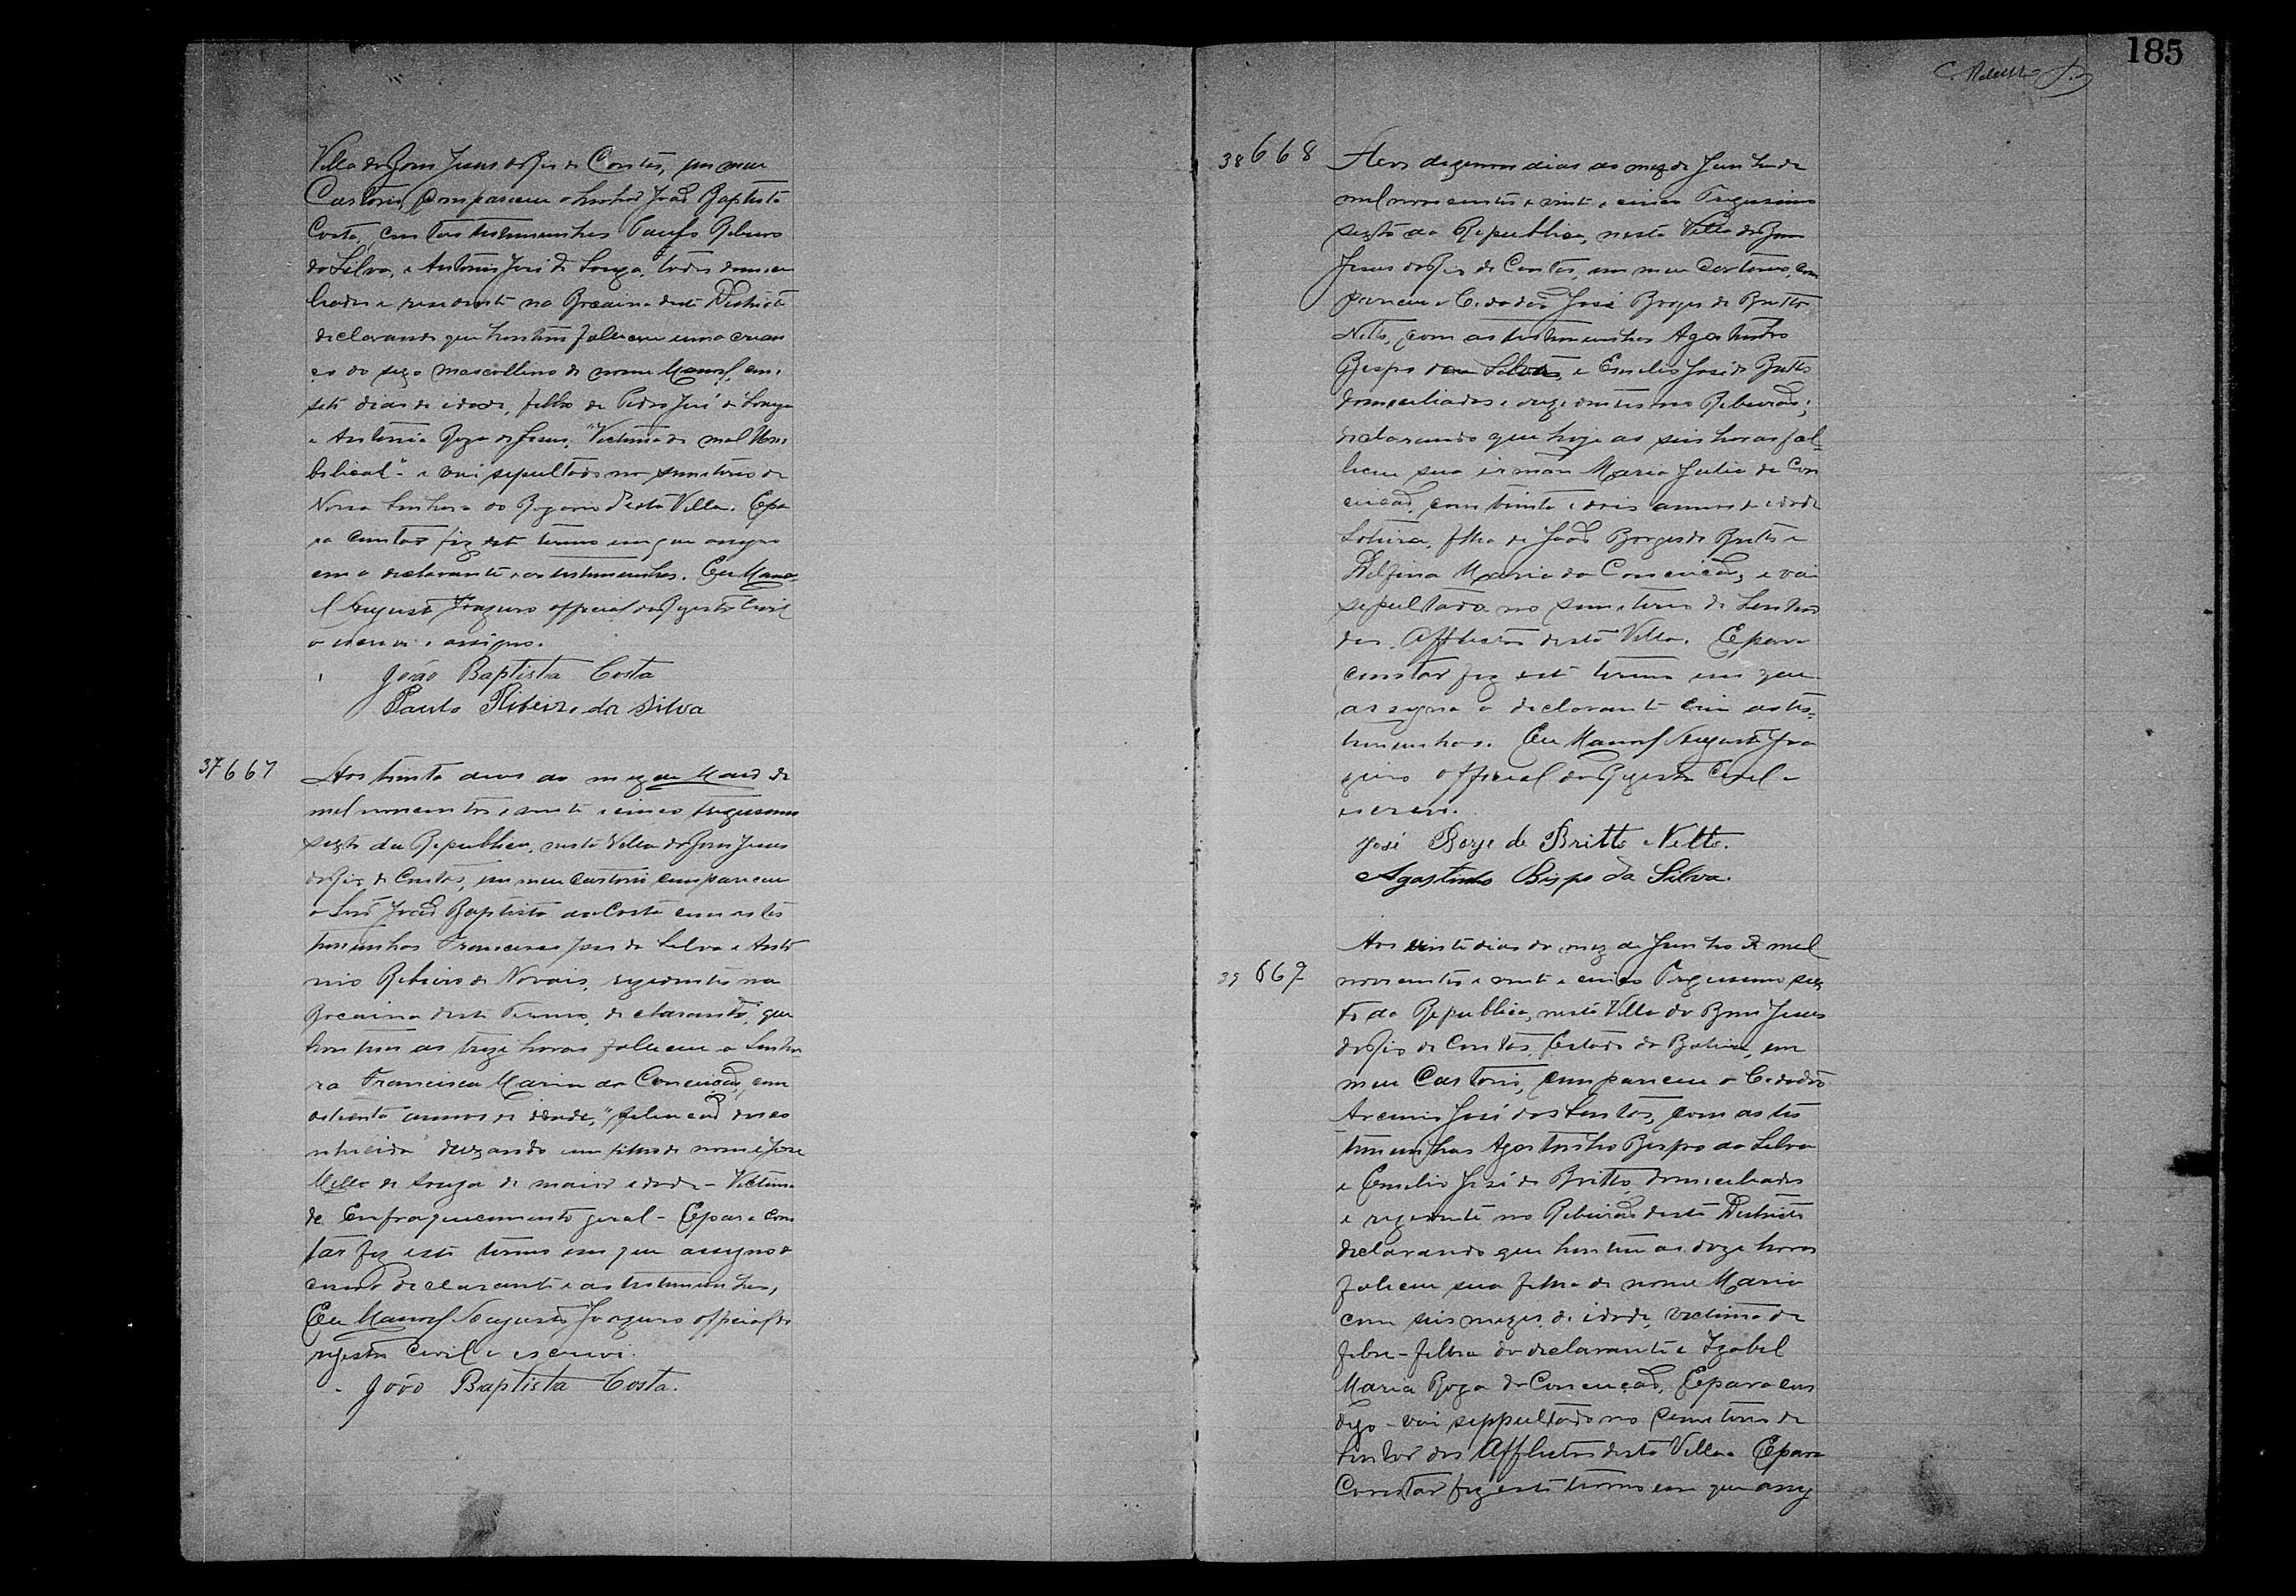 Villa do Bom Jesus do Rio de Contas, em meu
Cartorio, compareceu o Senhor João Baptista
Costa, com tas testemunhas Paulo Ribeiro
da Silva, e Antonio José de Souza, todos domici
liados e residente na Bocaina deste Districto
declarando que hontem falleceu uma crian
ça do sexo mascollino de nome Manoel, com
sete dias de idade, filho de Pedro José de Souza
e Antonia Roza de Jesus, "Victima de mal Um
belical" - e vai sepultado no semiterio de
Nossa Senhora do Rozario desta Villa. E pa
ra constar fiz este termo em que assigno
com o declarante e as testemunhas. Eu Mano-
el Augusto official do Registo Civil
o escrevi e assigno.
João Baptista Costa
Paulo Ribeiro da Silva
37 667
Aos trinta dias do mez de Maio de
mil novecentos e vinte e cinco trigessimo
sexto da Republica, nesta Villa do Bom Jesus
do Rio de Contas, em meu cartorio compareceu
o Snr João Baptista da Costa com as tes
timunhas Francisco José da Silva e Anto
nio Ribeiro de Novais, rezidentes na
Bocaina deste Termo, declarando, que
hontem as treze horas faleceu a Senho
ra Francisca Maria da Conceição, com
oitenta annos de idade, "filiacão desco
nhecida" deixando um filho de nome José
Mello de Souza de maior idade - Victima
de Enfraquecimento geral - E para cons
tar fiz este termo em que assigno
com o declarante e as testemunhas,
Eu Manoel Augusto official do
registro Civil o escrevi.
João Baptista Costa.
185
38 668
Aos dezenove dias do mez de Junho de
mil novecentos e vinte e cinco Trigessimo
sexto da Republica, nesta Villa do Bom
Jesus do Rio de Contas, em meu Cartorio, com
pareceu o Cidadão José Borges de Britto
Netto, com as testemunhas Agostinho
Bispo da Silva, e Emilio José de Britto
domiciliados e rezidentes no Ribeirão;
declarando que hoje as seis horas fal-
leceu sua irman Maria Julia da Con
ceicão, com vinte e dois annos de idade
Solteira, filha de João Borges de Britto e
Delfina Maria da Conceicão, e vai
sepultada no semiterio do Senhor
dos Afflictos desta Villa. E para
constar fiz este termo em que
assigna o declarante com as tes-
temunhas. Eu Manoel Augusto
official do Registo Civil o
escrevi.
José Borge de Britto Netto.
Agostinho Bispo da Silva.
39 669
Aos vinte dias do mez de Junho de mil
novecentos e vinte e cinco Trigessimo sex
to da Republica, nesta Villa do Bom Jesus
do Rio de Contas, Estado da Bahia, em
meu Cartorio, compareceu o Cidadão
José dos Santos, com as tes
temunhas Agostinho Bispo da Silva
e Emilio José de Britto, domiciliados
e rezidente no Ribeirão deste Districto
declarando que hontem as doze horas
faleceu sua filha de nome Maria
com seis mezes de idade, victima de
febre - filha do declarante e Izabel
Maria Roza da Conceição, E para cons
digo - vai seppultado no Semiterio do
Senhor dos Afflictos desta Villa. E para
Constar fiz este termo em que assy